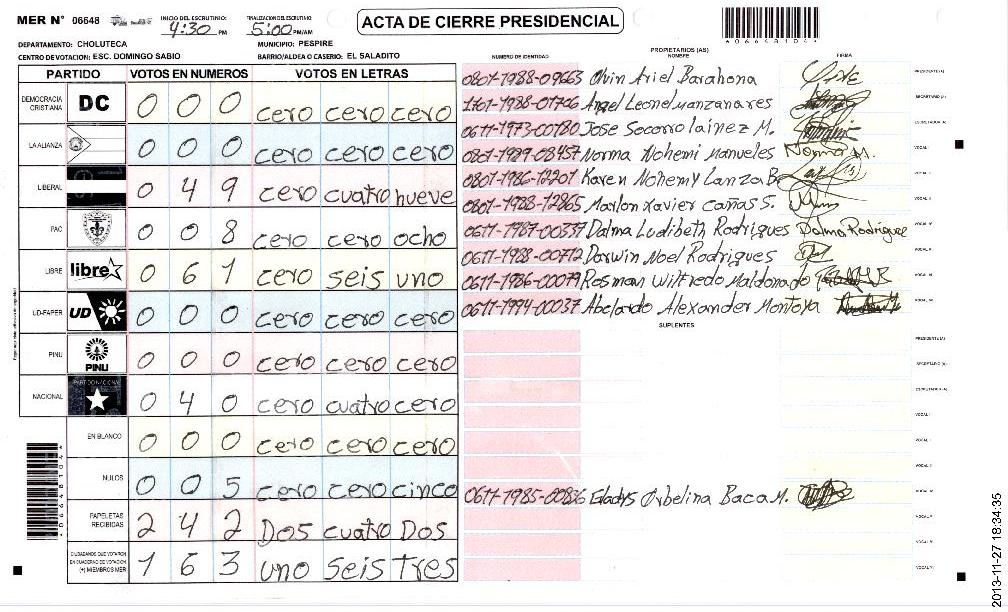 MER N° 06648
INICIO DEL ESCRUTINIO 4:30 PM
FINALIZACION DEL ESCRUTINIO 5:00 PM/AM
ACTA DE CIERRE PRESIDENCIAL
DEPARTAMENTO: CHOLUTECA
MUNICIPIO: PESPIRE
CENTRO DE VOTACION: ESC. DOMINGO SABIO
BARRIO/ALDEA O CASERIO: EL SALADITO
PARTIDO VOTOS EN NUMEROS VOTOS EN LETRAS
DEMOCRACIA CRISTIANA DC 0 0 0 cero cero cero
LA ALIANZA 0 0 0 cero cero cero
LIBERAL 0 4 9 cero cuatro nueve
PAC 0 0 8 cero cero ocho
LIBRE libre 0 6 1 cero seis uno
UD-FAPER UD 0 0 0 cero cero cero
PINU PINU 0 0 0 cero cero cero
NACIONAL PARTIDO NACIONAL 0 4 0 cero cuatro cero
EN BLANCO 0 0 0 cero cero cero
NULOS 0 0 5 cero cero cinco
PAPELETAS RECIBIDAS 2 4 2 Dos cuatro Dos
CIUDADANOS QUE VOTARON EN CUADERNO DE VOTACION (+) MIEMBROS MER 1 6 3 uno seis Tres
PROPIETARIOS (AS)
NUMERO DE IDENTIDAD NOMBRE FIRMA
0801-1988-09663 Olvin Ariel Barahona PRESIDENTE(A)
1701-1988-01706 Angel Leonel manzanares SECRETARIO (A)
0611-1973-00180 Jose Socorro lainez M. ESCRUTADOR (A)
0801-1989-08457 Norma Nohemi Manueles Norma M. VOCAL I
0801-1986-12201 Karen Nohemy Lanza B. VOCAL II
0801-1988-12865 Marlon Xavier cañas S. VOCAL III
0611-1987-00337 Dalma Ludibeth Rodrigues Dalma Rodriguez VOCAL IV
0611-1988-00712 Darwin Noel Rodrigues VOCAL V
0611-1986-00079 Rosman Wilfredo Maldonado
0611-1994-00037 Abelardo Alexander Montoya
SUPLENTES
PRESIDENTE(A)
SECRETARIO (A)
ESCRUTADOR (A)
VOCAL I
VOCAL II
0611-1985-00836 Gladys Orbelina Baca M.
06648104
2013-11-27 18:34:35